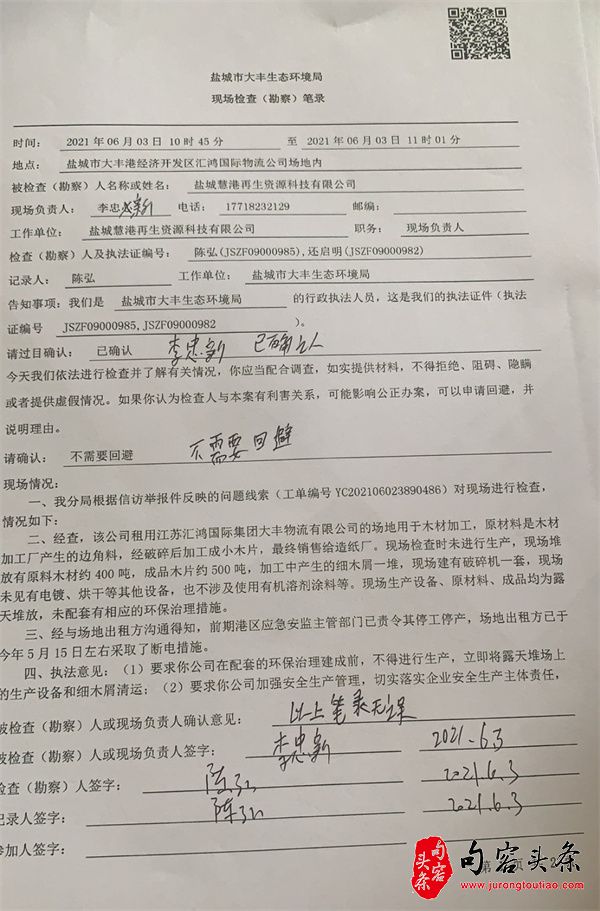 盐城市大丰生态环境局
现场检查（勘察）笔录
时间： 2021年06月03日10时45分 至 2021年06月03日11时01分
地点： 盐城市大丰港经济开发区汇鸿国际物流公司场地内
被检查（勘察）人名称或姓名： 盐城慧港再生资源科技有限公司
现场负责人： 李忠新 电话： 17718232129 邮编：
工作单位： 盐城慧港再生资源科技有限公司 职务： 现场负责人
检查（勘察）人及执法证编号： 陈弘(JSZF09000985),还启明(JSZF09000982)
记录人： 陈弘 工作单位： 盐城市大丰生态环境局
告知事项：我们是 盐城市大丰生态环境局 的行政执法人员，这是我们的执法证件（执法
证编号 JSZF09000985,JSZF09000982 ）。
请过目确认： 已确认 李忠新 已确认
今天我们依法进行检查并了解有关情况，你应当配合调查，如实提供材料，不得拒绝、阻碍、隐瞒
或者提供虚假情况。如果你认为检查人与本案有利害关系，可能影响公正办案，可以申请回避，并
说明理由。
请确认： 不需要回避 不需要回避
现场情况：
一、我分局根据信访举报件反映的问题线索（工单编号YC202106023890486）对现场进行检查，
情况如下：
二、经查，该公司租用江苏汇鸿国际集团大丰物流有限公司的场地用于木材加工，原材料是木材
加工厂产生的边角料，经破碎后加工成小木片，最终销售给造纸厂。现场检查时未进行生产，现场堆
放有原料木材约400吨，成品木片约500吨，加工中产生的细木屑一堆，现场建有破碎机一套，现场
未见有电镀、烘干等其他设备，也不涉及使用有机溶剂涂料等。现场生产设备、原材料、成品均为露
天堆放，未配套有相应的环保治理措施。
三、经与场地出租方沟通得知，前期港区应急安监主管部门已责令其停工停产，场地出租方已于
今年5月15日左右采取了断电措施。
四、执法意见：（1）要求你公司在配套的环保治理建成前，不得进行生产，立即将露天堆场上
的生产设备和细木屑清运；（2）要求你公司加强安全生产管理，切实落实企业安全生产主体责任，
被检查（勘察）人或现场负责人确认意见： 以上笔录无误
被检查（勘察）人或现场负责人签字： 李忠新 2021.6.3
检查（勘察）人签字： 陈弘 2021.6.3
记录人签字： 陈弘 2021.6.3
参加人签字：
第 页
句容头条
句容头条
www.jurongtoutiao.com